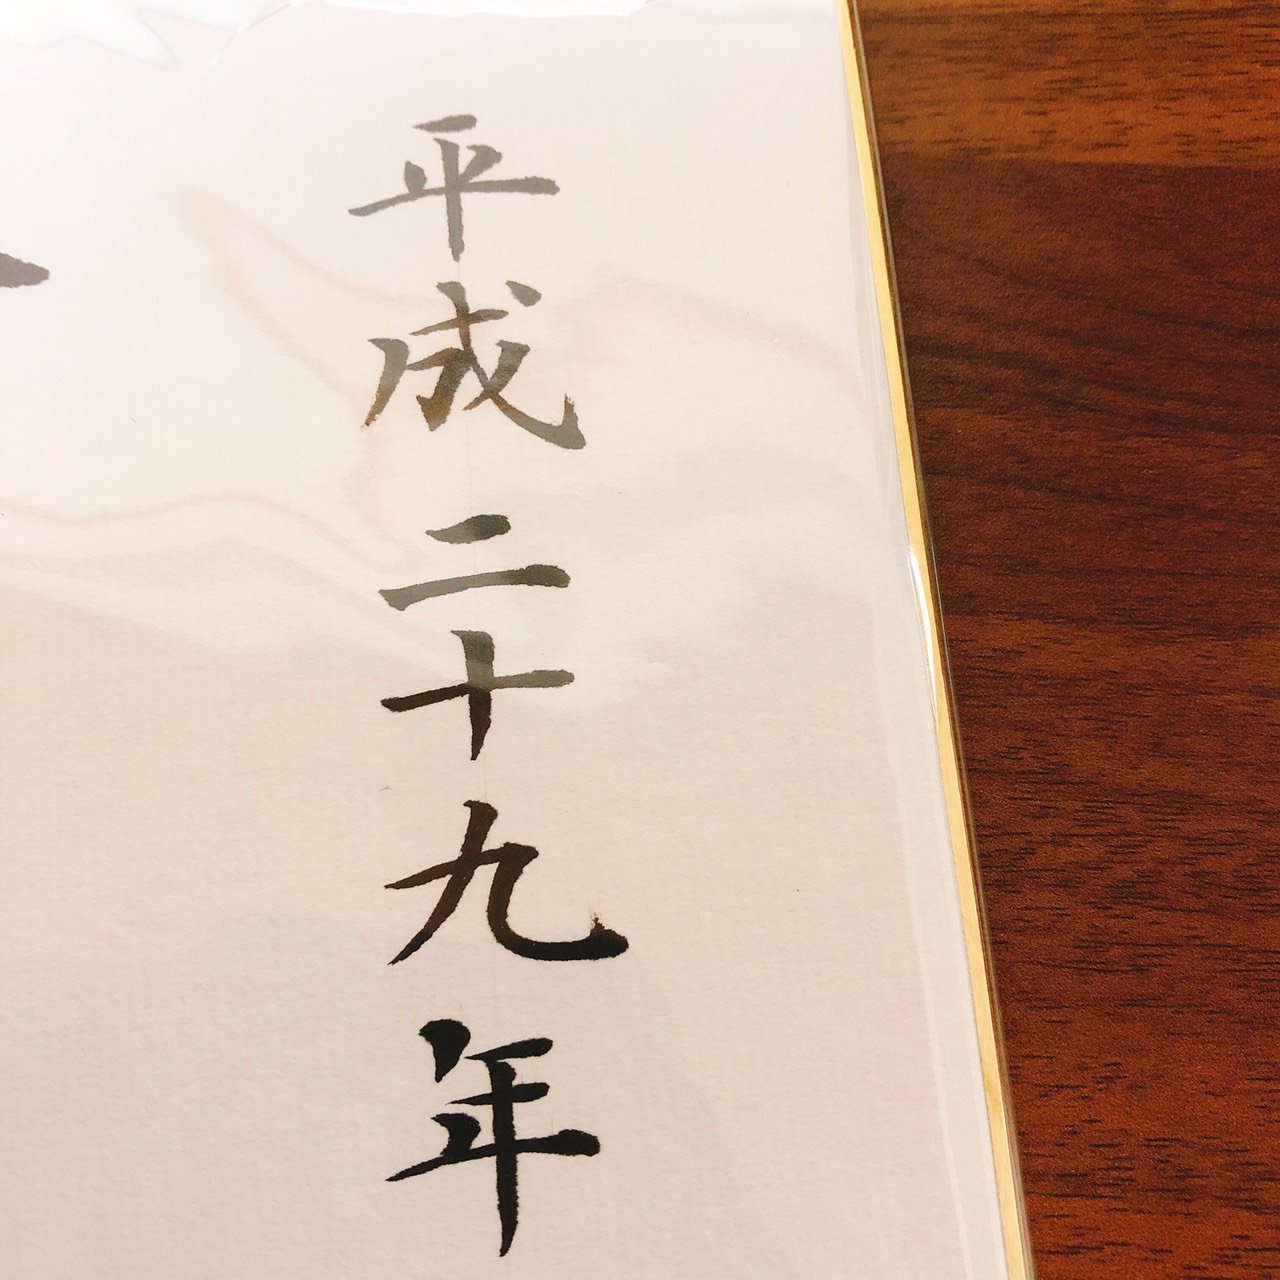 平成二十九年